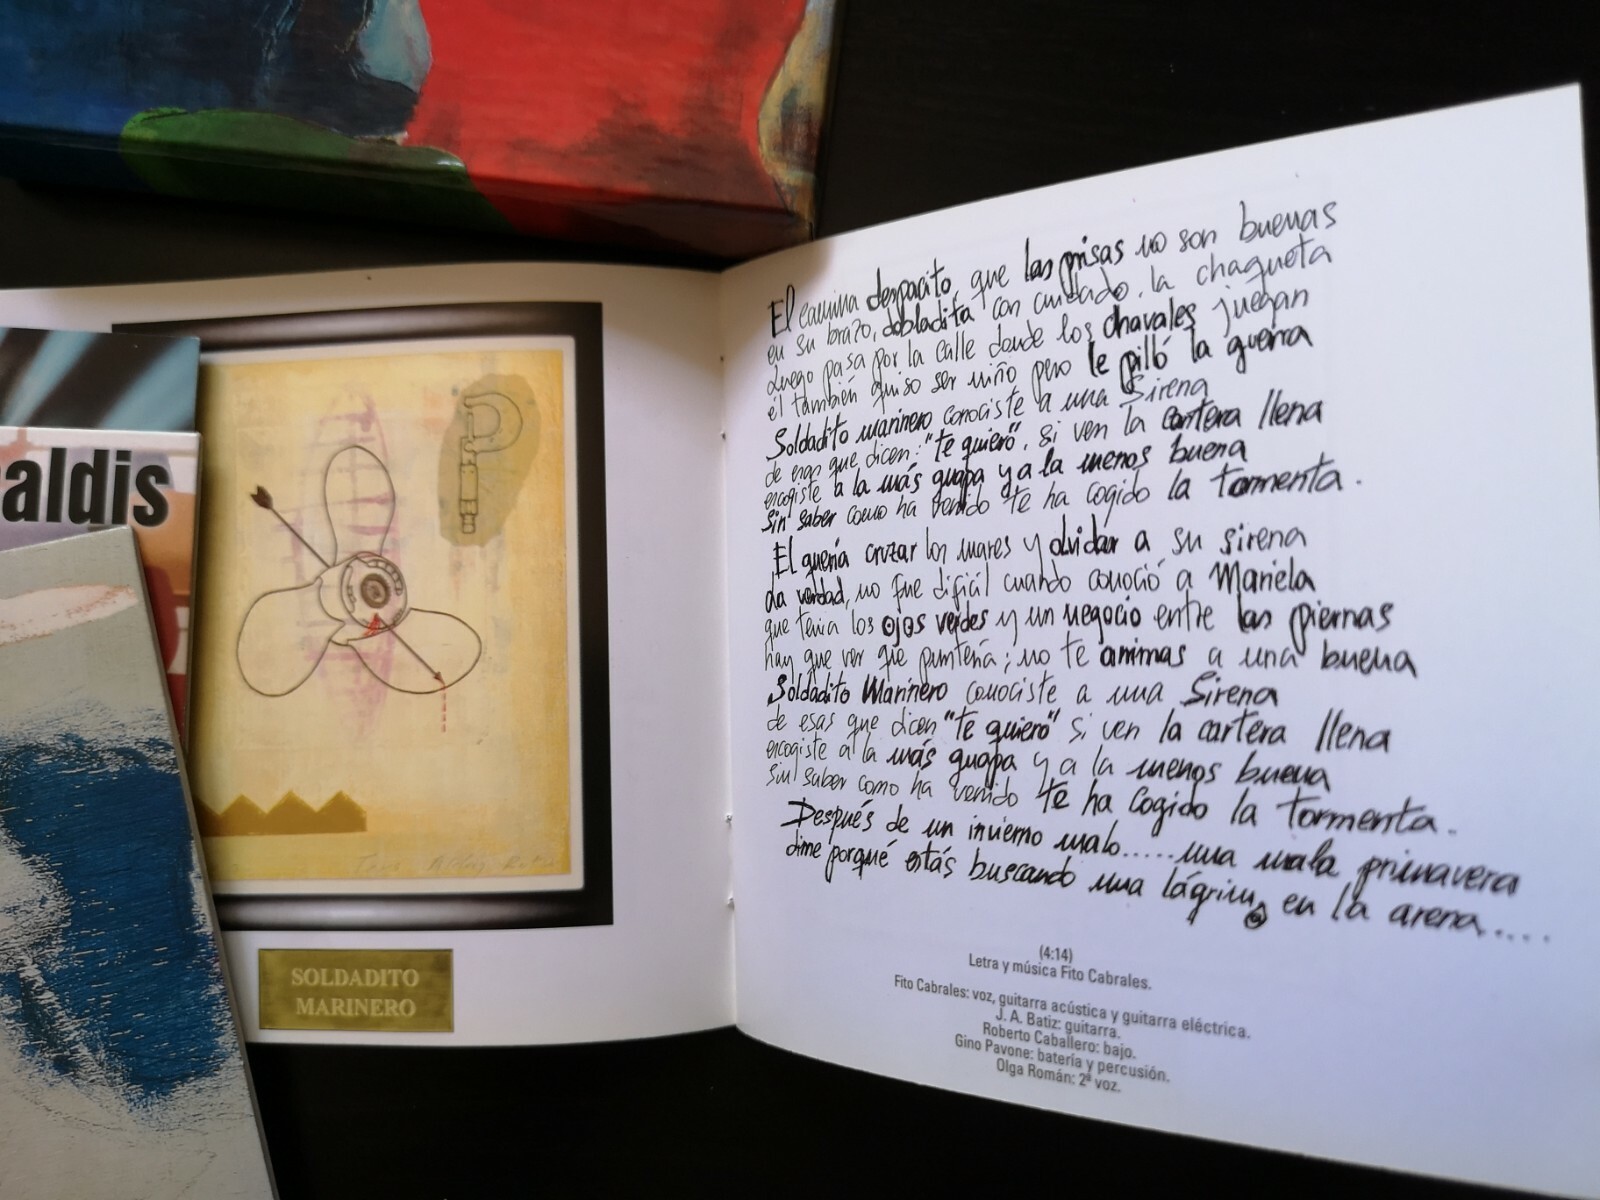 aldis
SOLDADITO
MARINERO
El camina despacito, que las prisas no son buenas
en su brazo, dobladita con cuidado, la chaqueta
Luego pasa por la calle donde los chavales juegan
él también quiso ser niño pero le pilló la guerra
Soldadito marinero conociste a una Sirena
de esas que dicen: "te quiero", si ven la cartera llena
escogiste a la más guapa y a la menos buena
Sin saber como ha venido te ha cogido la tormenta.
El quería cruzar los mares y olvidar a su sirena
La verdad, no fue difícil cuando conoció a Mariela
que tenía los ojos verdes y un negocio entre las piernas
hay que ver que puntería; no te arrimas a una buena
Soldadito Marinero conociste a una Sirena
de esas que dicen "te quiero" si ven la cartera llena
escogiste a la más guapa y a la menos buena
sin saber como ha venido te ha cogido la tormenta.
Después de un invierno malo.....una mala primavera
dime porqué estás buscando una lágrima en la arena.....
(4:14)
Letra y música Fito Cabrales.
Fito Cabrales: voz, guitarra acústica y guitarra eléctrica.
J. A. Batiz: guitarra.
Roberto Caballero: bajo.
Gino Pavone: batería y percusión.
Olga Román: 2ª voz.